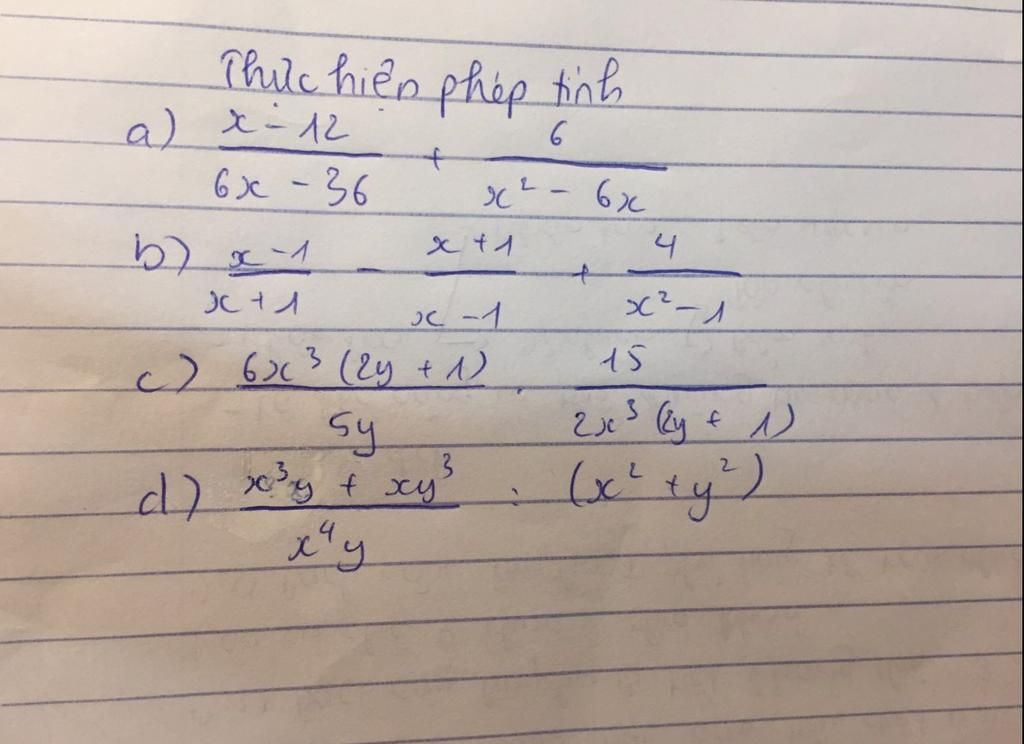 Thực hiện phép tính
a) (x - 12)/(6x - 36) + 6/(x² - 6x)
b) (x - 1)/(x + 1) - (x + 1)/(x - 1) + 4/(x² - 1)
c) (6x³ (2y + 1))/(5y) . 15/(2x³ (2y + 1))
d) (x³y + xy³)/(x⁴y) : (x² + y²)